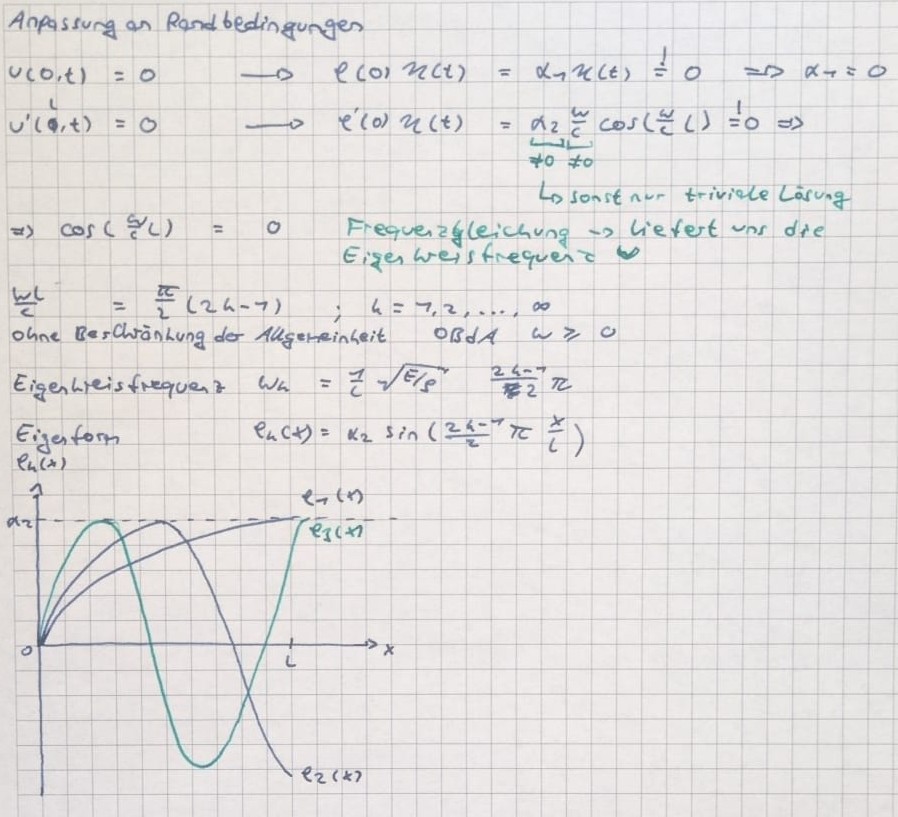 Anpassung an Randbedingungen
u(0,t) = 0 → φ(0) η(t) = α₁ η(t) =! 0 ⇒ α₁ = 0
u'(l,t) = 0 → φ'(0) η(t) = α₂ ω/c cos(ω/c l) =! 0 ⇒
≠0 ≠0
↳ sonst nur triviale Lösung
⇒ cos(ω/c l) = 0 Frequenzgleichung → liefert uns die
Eigenkreisfrequenz
ωl/c = π/2 (2k-1) ; k = 1,2, ..., ∞
ohne Beschränkung der Allgemeinheit OBdA ω ≥ 0
Eigenkreisfrequenz ωk = 1/l √E/ρ (2k-1)/2 π
Eigenform φk(x) = α₂ sin((2k-1)/2 π x/l)
φk(x)
φ₁(x)
α₂
φ₃(x)
0 l x
φ₂(x)